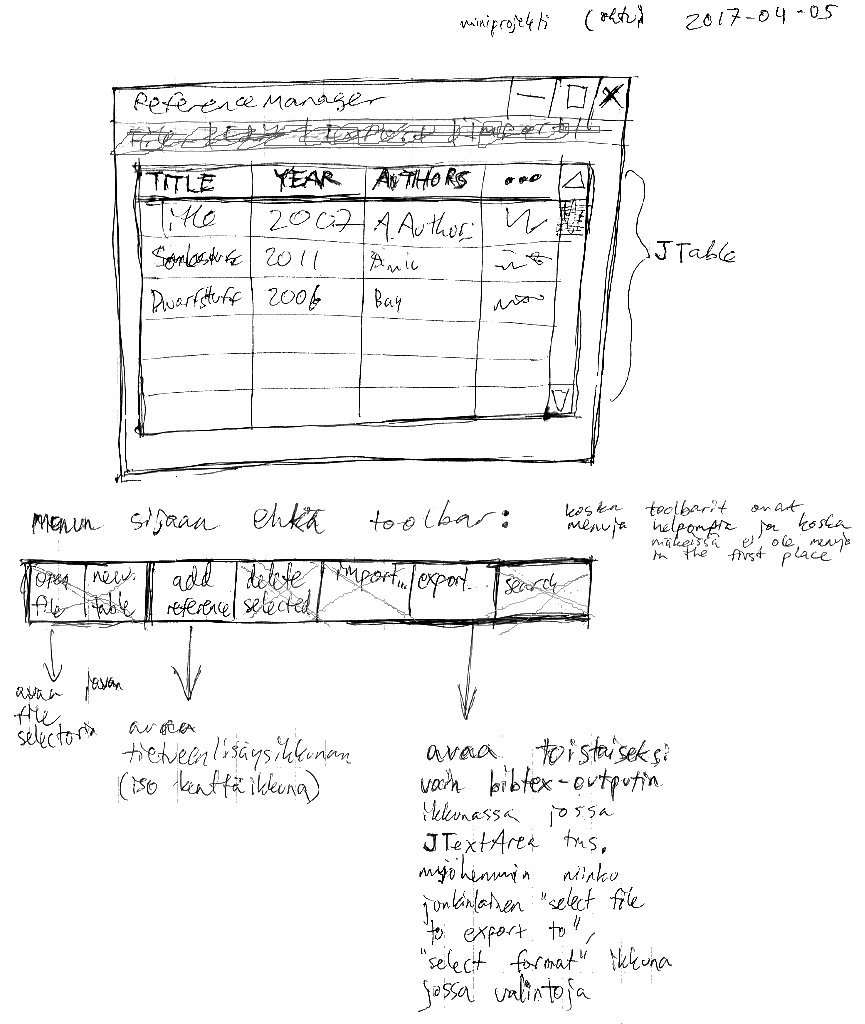 miniprojekti (ohtu) 2017-04-05
Reference Manager
TITLE YEAR AUTHORS ...
Title 2007 A. Author
2011
Dwarfstuff 2006 Bay
JTable
menun sijaan ehkä toolbar:
koska toolbarit ovat
menuja helpompia ja koska
ei ole menuja
in the first place
open file
new table
add reference
delete selected
import...
export...
search
avaa javan
file
selectorin
avaa
tietueenlisäysikkunan
(iso kenttäikkuna)
avaa toistaiseksi
vain bibtex-outputin
ikkunassa jossa
JTextArea tms.
myöhemmin niinko
jonkinlainen "select file
to export to",
"select format" ikkuna
jossa valintoja